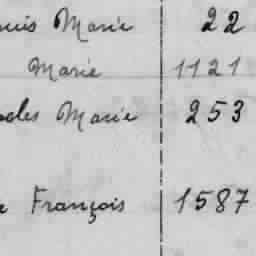 Marie 22
Marie 1121
Marie 253
François 1587